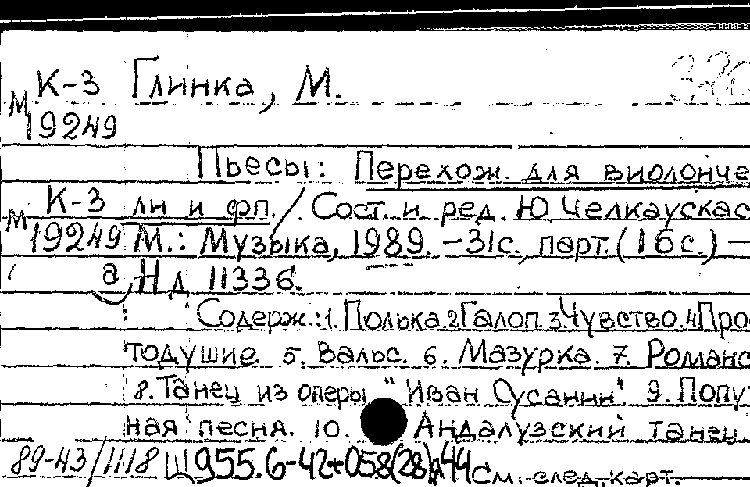 К-3 Глинка, М.
М 19249
Пьесы: Перелож. для виолонче
К-3 ли и фп. / Сост. и ред. Ю. Челкаускас
М 19249 М.: Музыка, 1989. – 31с. парт. (16с.) –
а Нд 11336.
Содерж.: 1. Полька 2 Галоп 3. Чувство. 4 Про
тодушие. 5. Вальс. 6. Мазурка. 7. Романс
8. Танец из оперы "Иван Сусанин". 9. Попут
ная песня. 10. Андалузский танец
89-43/1118 Щ955.6-42+058(28)я44 См. след. карт.